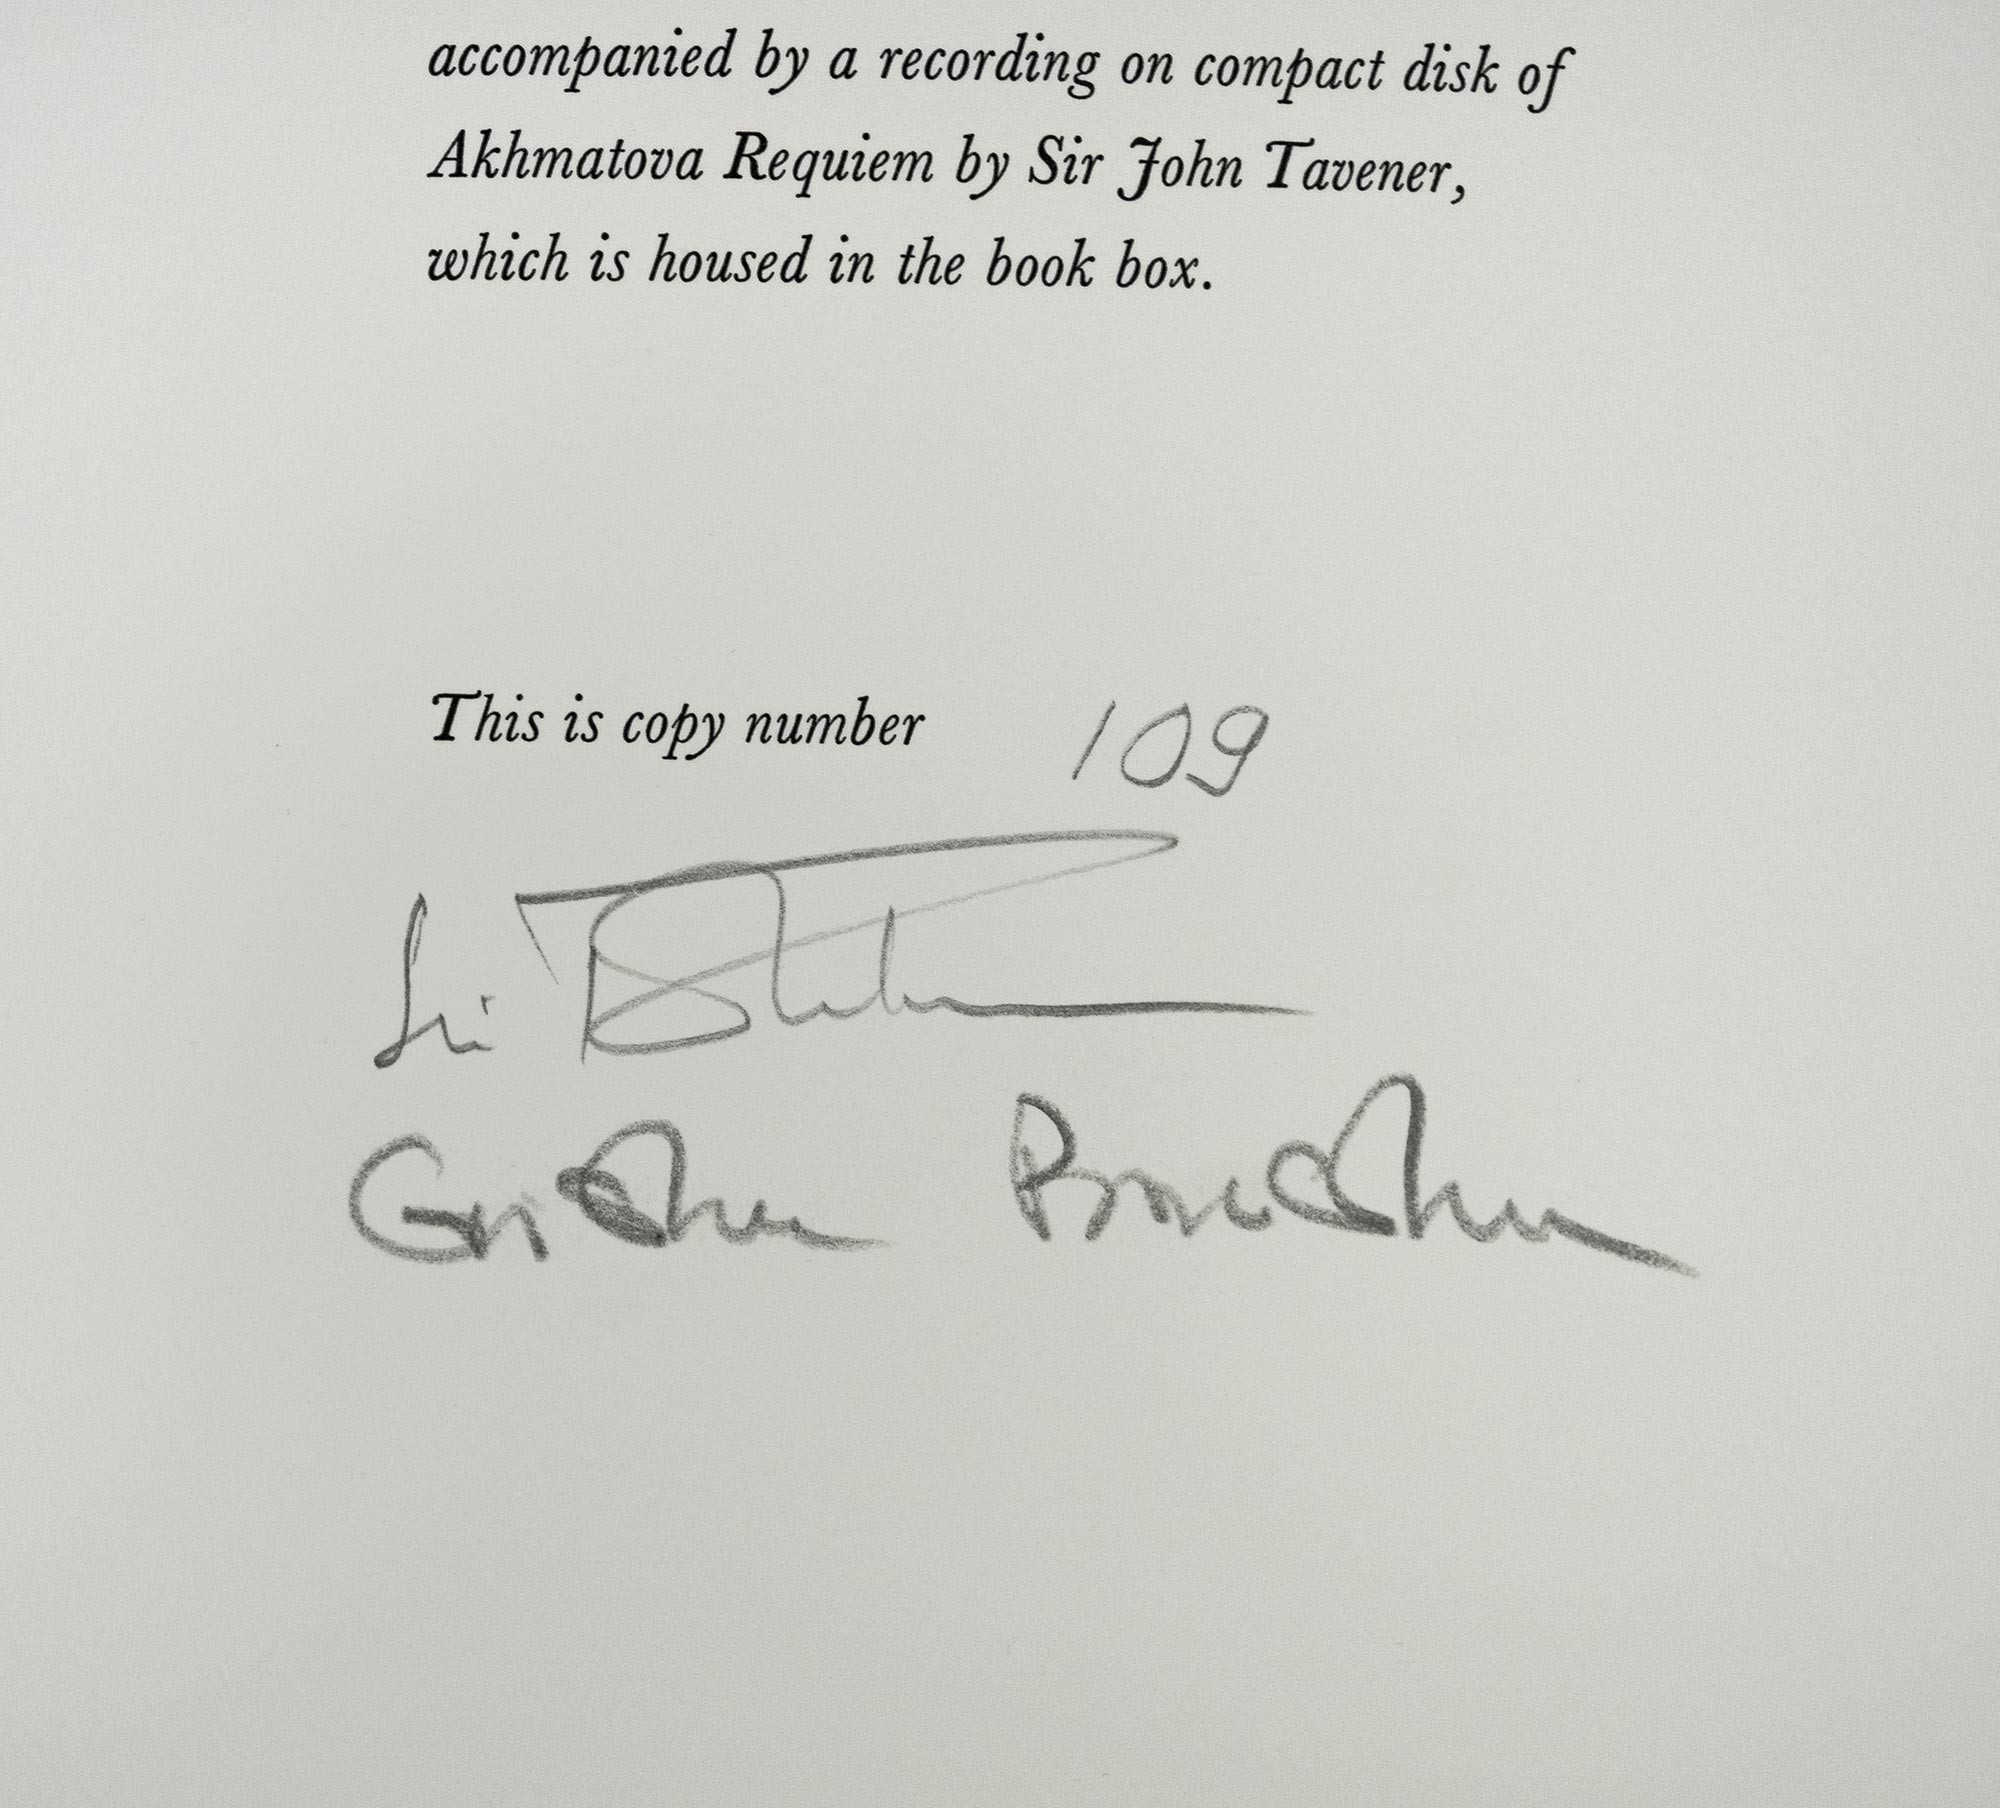 accompanied by a recording on compact disk of
Akhmatova Requiem by Sir John Tavener,
which is housed in the book box.
This is copy number 109
Grisha Bruskin